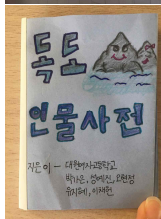 독도
인물사전
지은이 - 대원여자고등학교
박가은, 성예진, 원현정
유지혜, 이채원